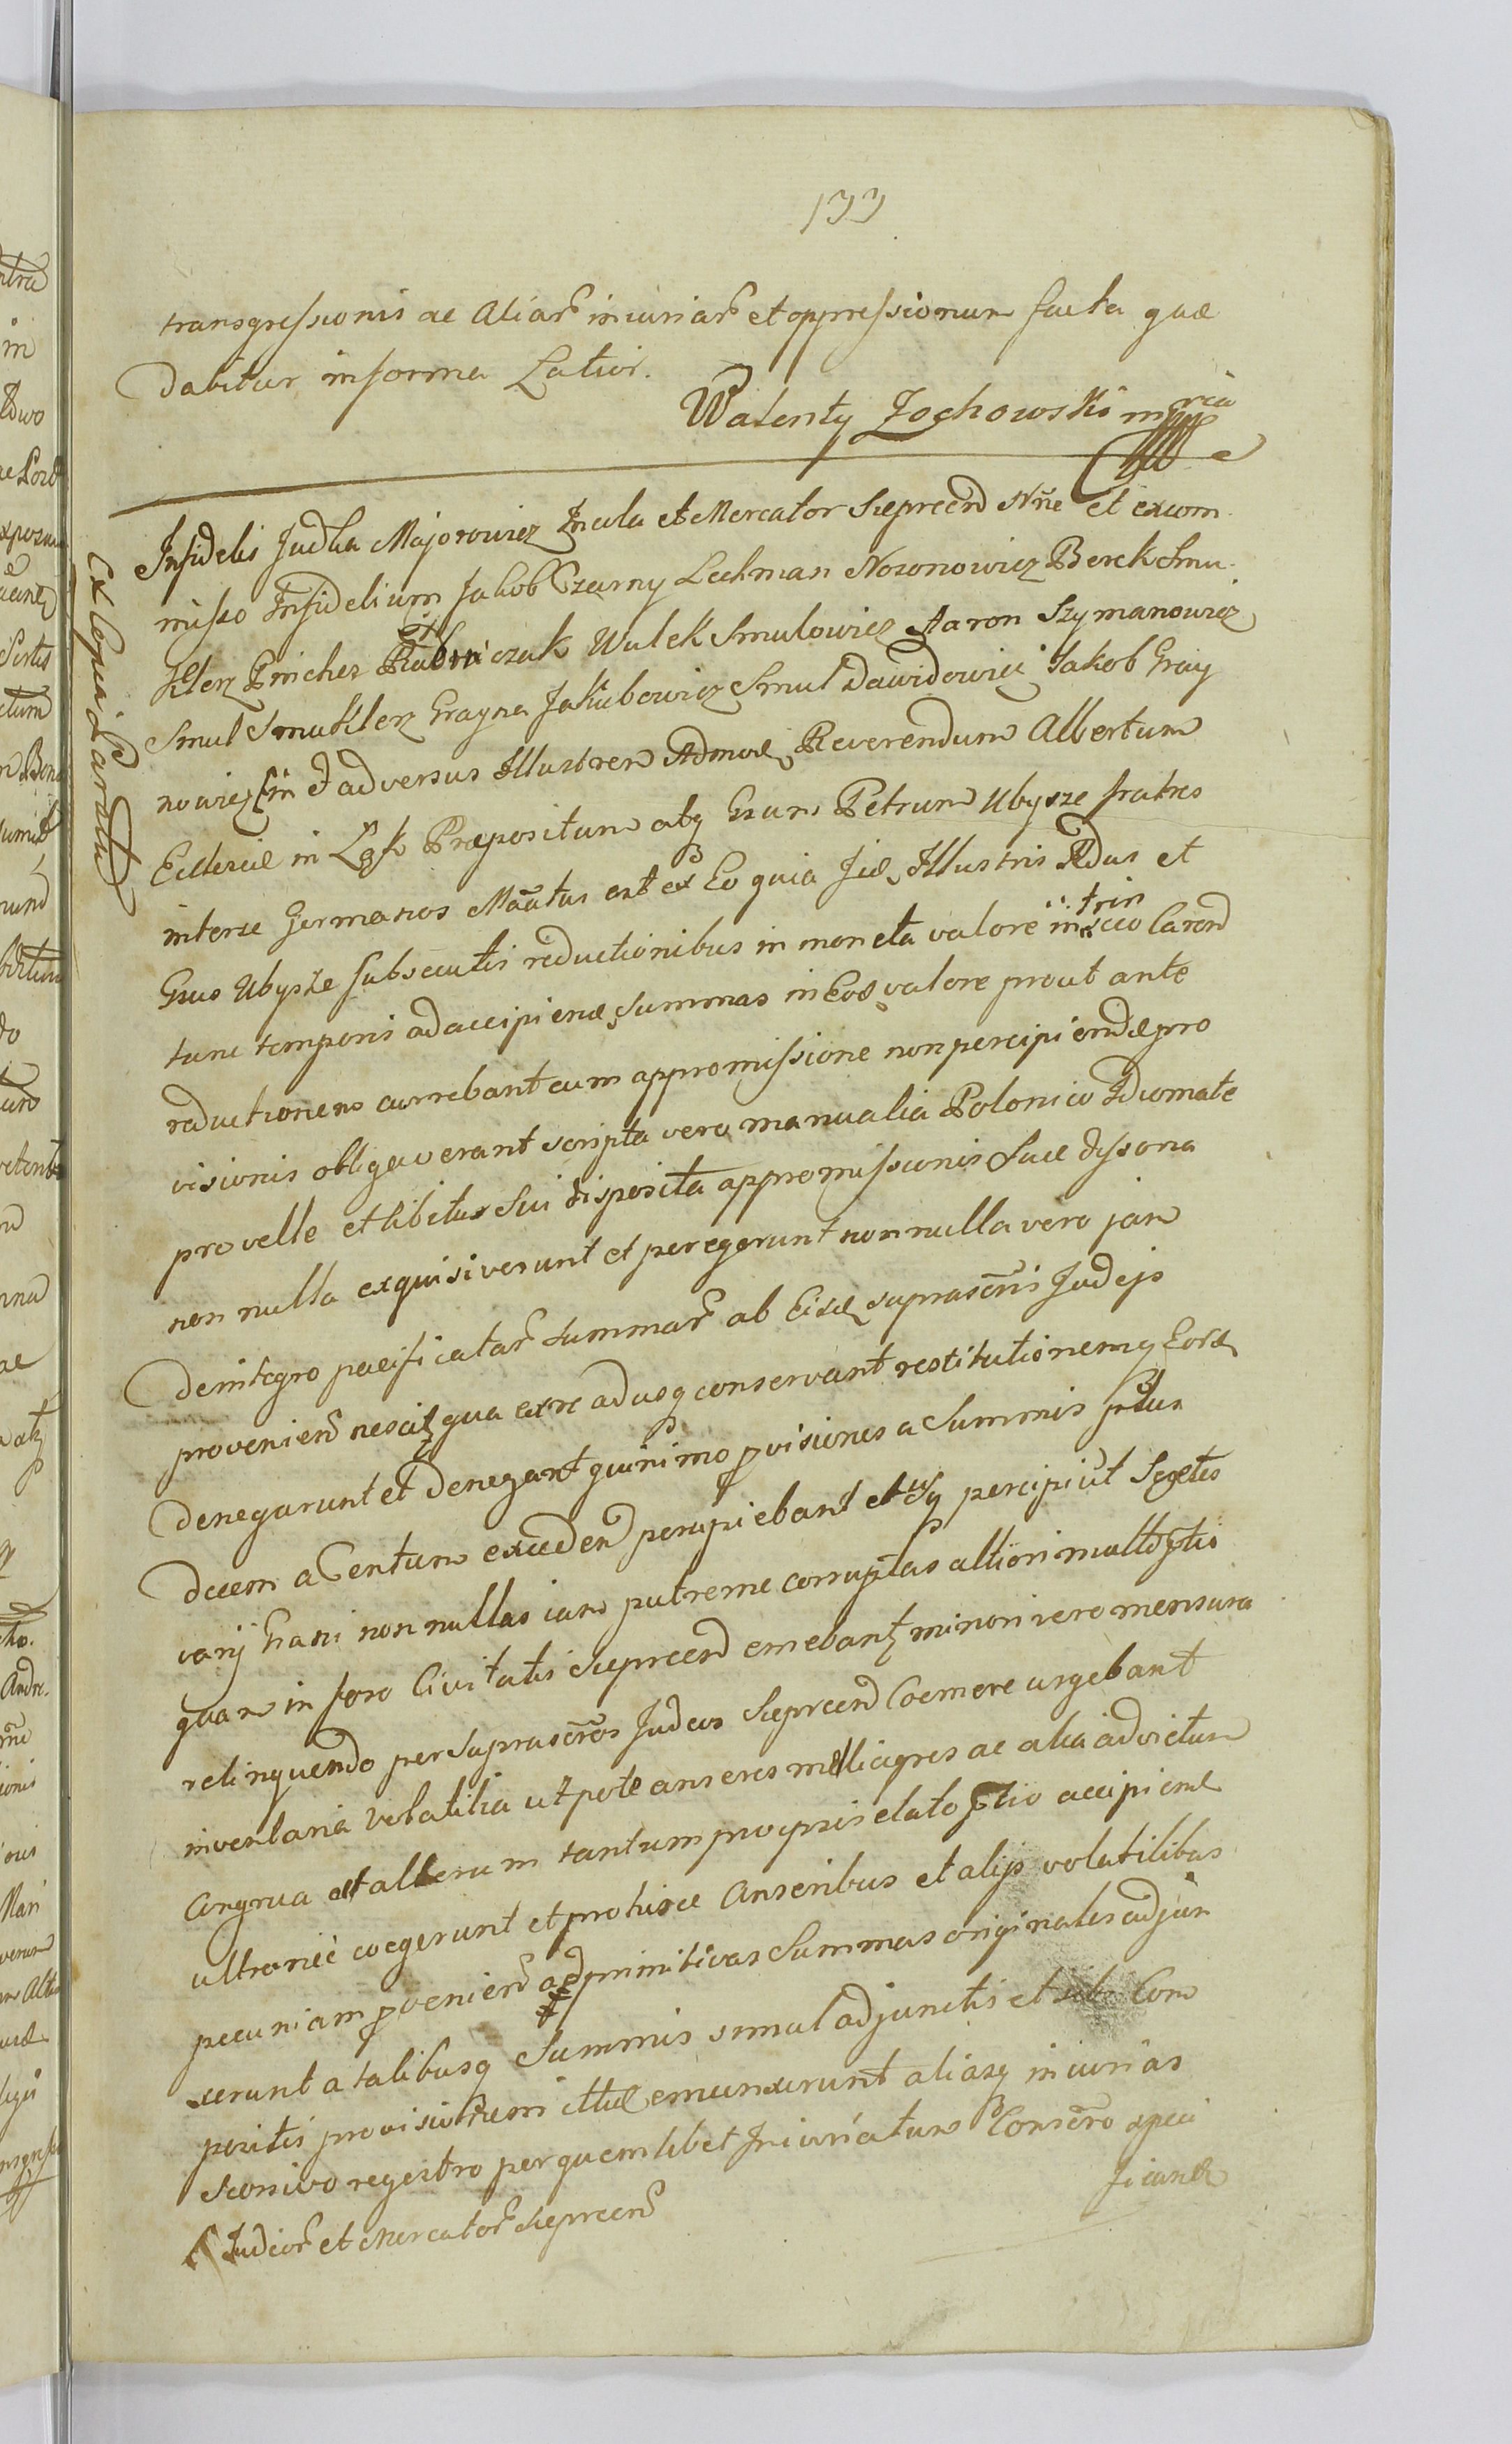 133
transgressionis ac Aliar iniuriar et oppressionum facta quæ
dabitur in forma Latior.
Walenty Zochowski mpria
Ex Copia Paratu
Infidelis Judka Majorowicz Incola et Mercator Siepreen Nne et excom
misso Infidelium Jakob Czarny Lachman Nosonowicz Berek Smu
Kler Pinches Rabiniczak Wulek Smulowicz Aaron Szymanowicz
Smul Smukler Grayna Jakubowicz Smul Dawidowicz Jakob Gray
nowicz in adversus Illustrem Admod Reverendum Albertum
Ecclesiæ in Præpositum atq Gsum Petrum Ubysze fratres
interse Germanos Maatus est ex Eo quia Jid Illustris Rdus et
Gsus Ubysze subsecutis reductionibus in moneta valore intrinseco Caren
tunc temporis ad accipiend summas in Eod valore prout ante
reductionem currebant cum appromissione non percipiendæ pro
visionis obligaverant scripta vero manualia Polonico Idiomate
pro velle et libitu sui disposita appromissionis suæ dissona
non nulla exquisiverunt et peregerunt non nulla vero jam
de integro pacificatar summar ab Eisd suprascris Judejs
provenien nescitq qua ex re ad usq conservant restitutionemq Eord
denegarunt et denegant quinimo provisiones a Summis
decem a Centum exceden percipiebant et percipiut Segetes
varij Grani non nullas iam putreme corruptas altiori multo ptio
quam in foro Civitatis Siepreen emebant minori vero mensura
relinquendo per suprascros Judeos Siepreen Coemere urgebant
inventaria Volatilia ut pote anseres melliagres ac alia ad victum
Congrua et alterum tantum pro ipsis elato ptio accipiend
ultroniee coegerunt et pro hisce Anseribus et alijs volatilibus
pecuniam provenien ad primitivas Summas originales adjun
xerunt a talibusq Summis simul adjunctis et sibi Com
positis provisionem emunxerunt aliasq iniurias
sconivo regestro per quemlibet Iniuriatum Conscro speci
ficand
Judeor et Mercator Siepreen